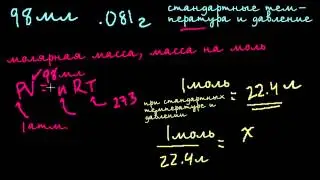 98мл .081г стандартные тем-
пература и давление
молярная масса, масса на моль
98мл
PV = nRT
273
1 атм.
1 моль = 22.4 л
при стандартных
температуре и
давлении
1 моль = x
22.4 л